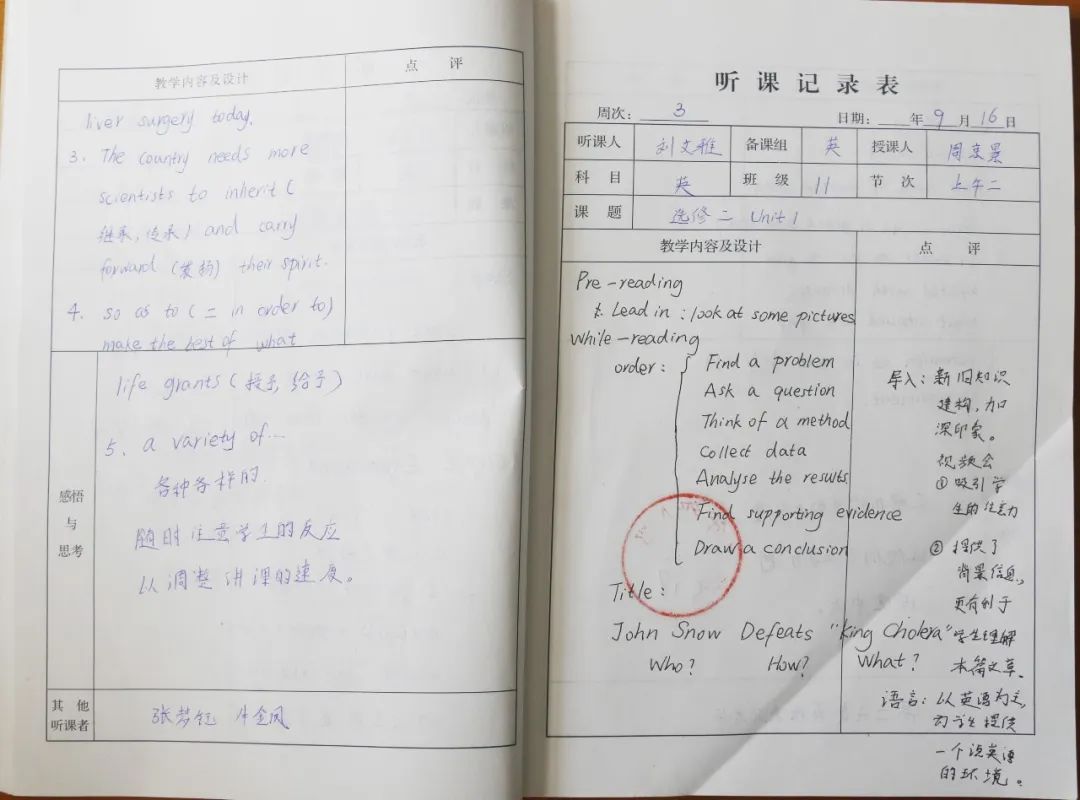 教学内容及设计
点 评
liver surgery today.
3. The country needs more
scientists to inherit (
继承,传承) and carry
forward (发扬) their spirit.
4. so as to (= in order to)
make the best of what
life grants (授予,给予)
5. a variety of...
各种各样的
感悟
与
思考
随时注意学生的反应
以调整讲课的速度。
其 他
听课者
张梦钰 牛金凤
听 课 记 录 表
周次: 3
日期: 年 9 月 16 日
听课人 刘文雅 备课组 英 授课人 周京景
科 目 英 班 级 11 节 次 上午二
课 题 选修二 Unit 1
教学内容及设计
点 评
Pre-reading
Lead in : look at some pictures
While-reading
order: Find a problem
Ask a question
Think of a method
Collect data
Analyse the results
Find supporting evidence
Draw a conclusion
Title:
John Snow Defeats "King Cholera"
Who? How? What?
导入: 新旧知识
建构,加
深印象。
视频会
① 吸引学
生的注意力
② 提供了
背景信息,
更有利于
学生理解
本篇文章.
语言: 以英语为主,
为学生提供
一个说英语
的环境。